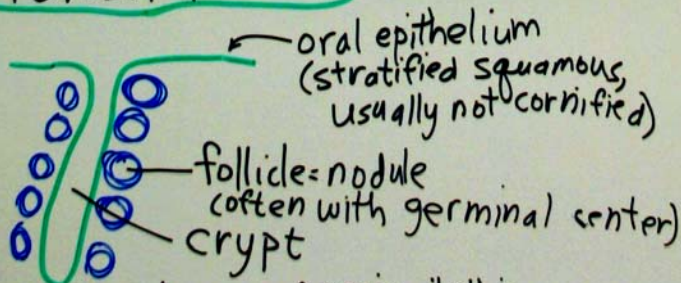 oral epithelium
(stratified squamous,
usually not cornified)
follicle=nodule
(often with germinal center)
crypt